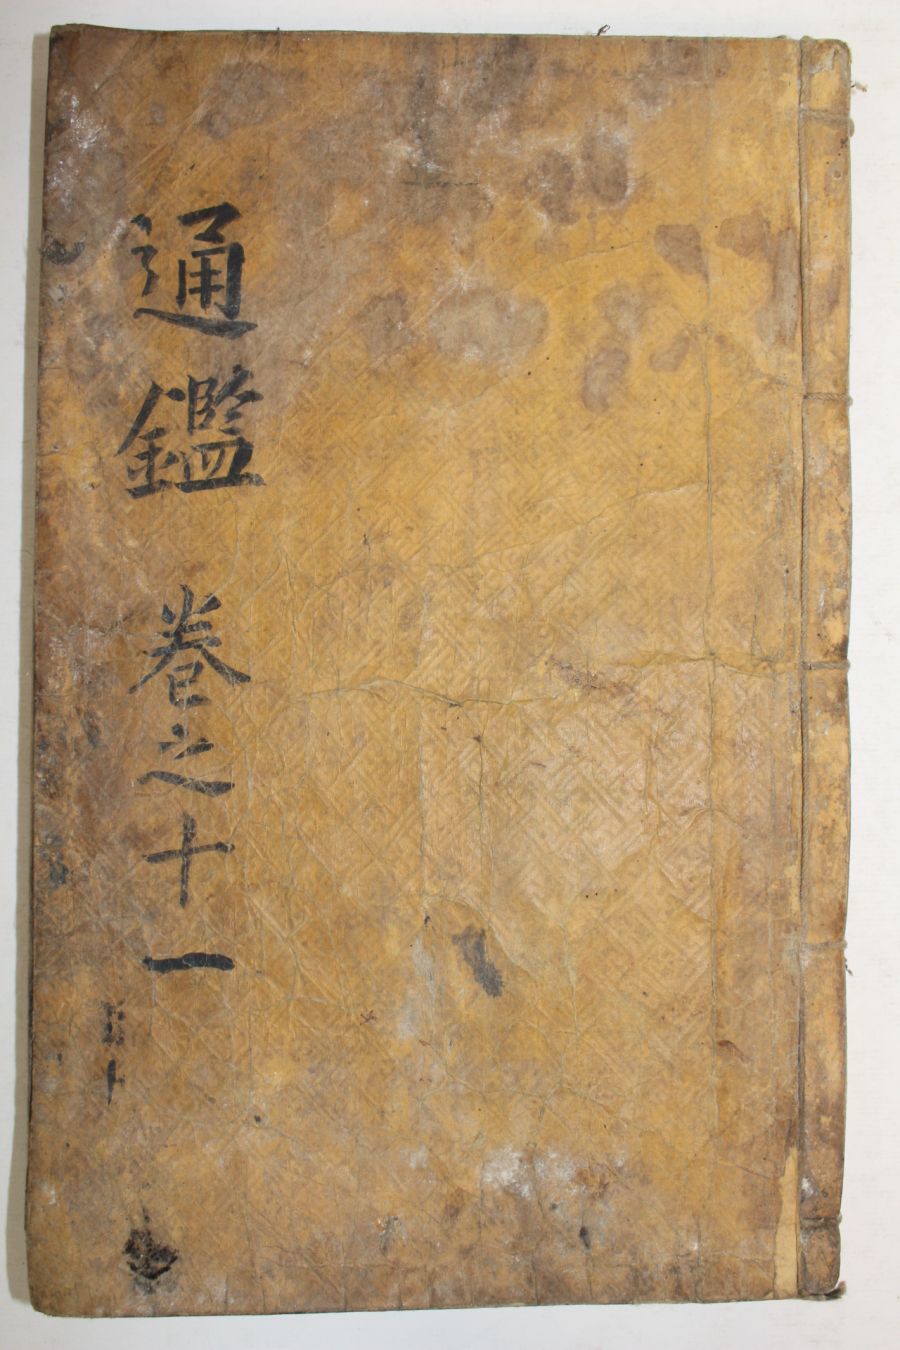 通鑑 巻之十一